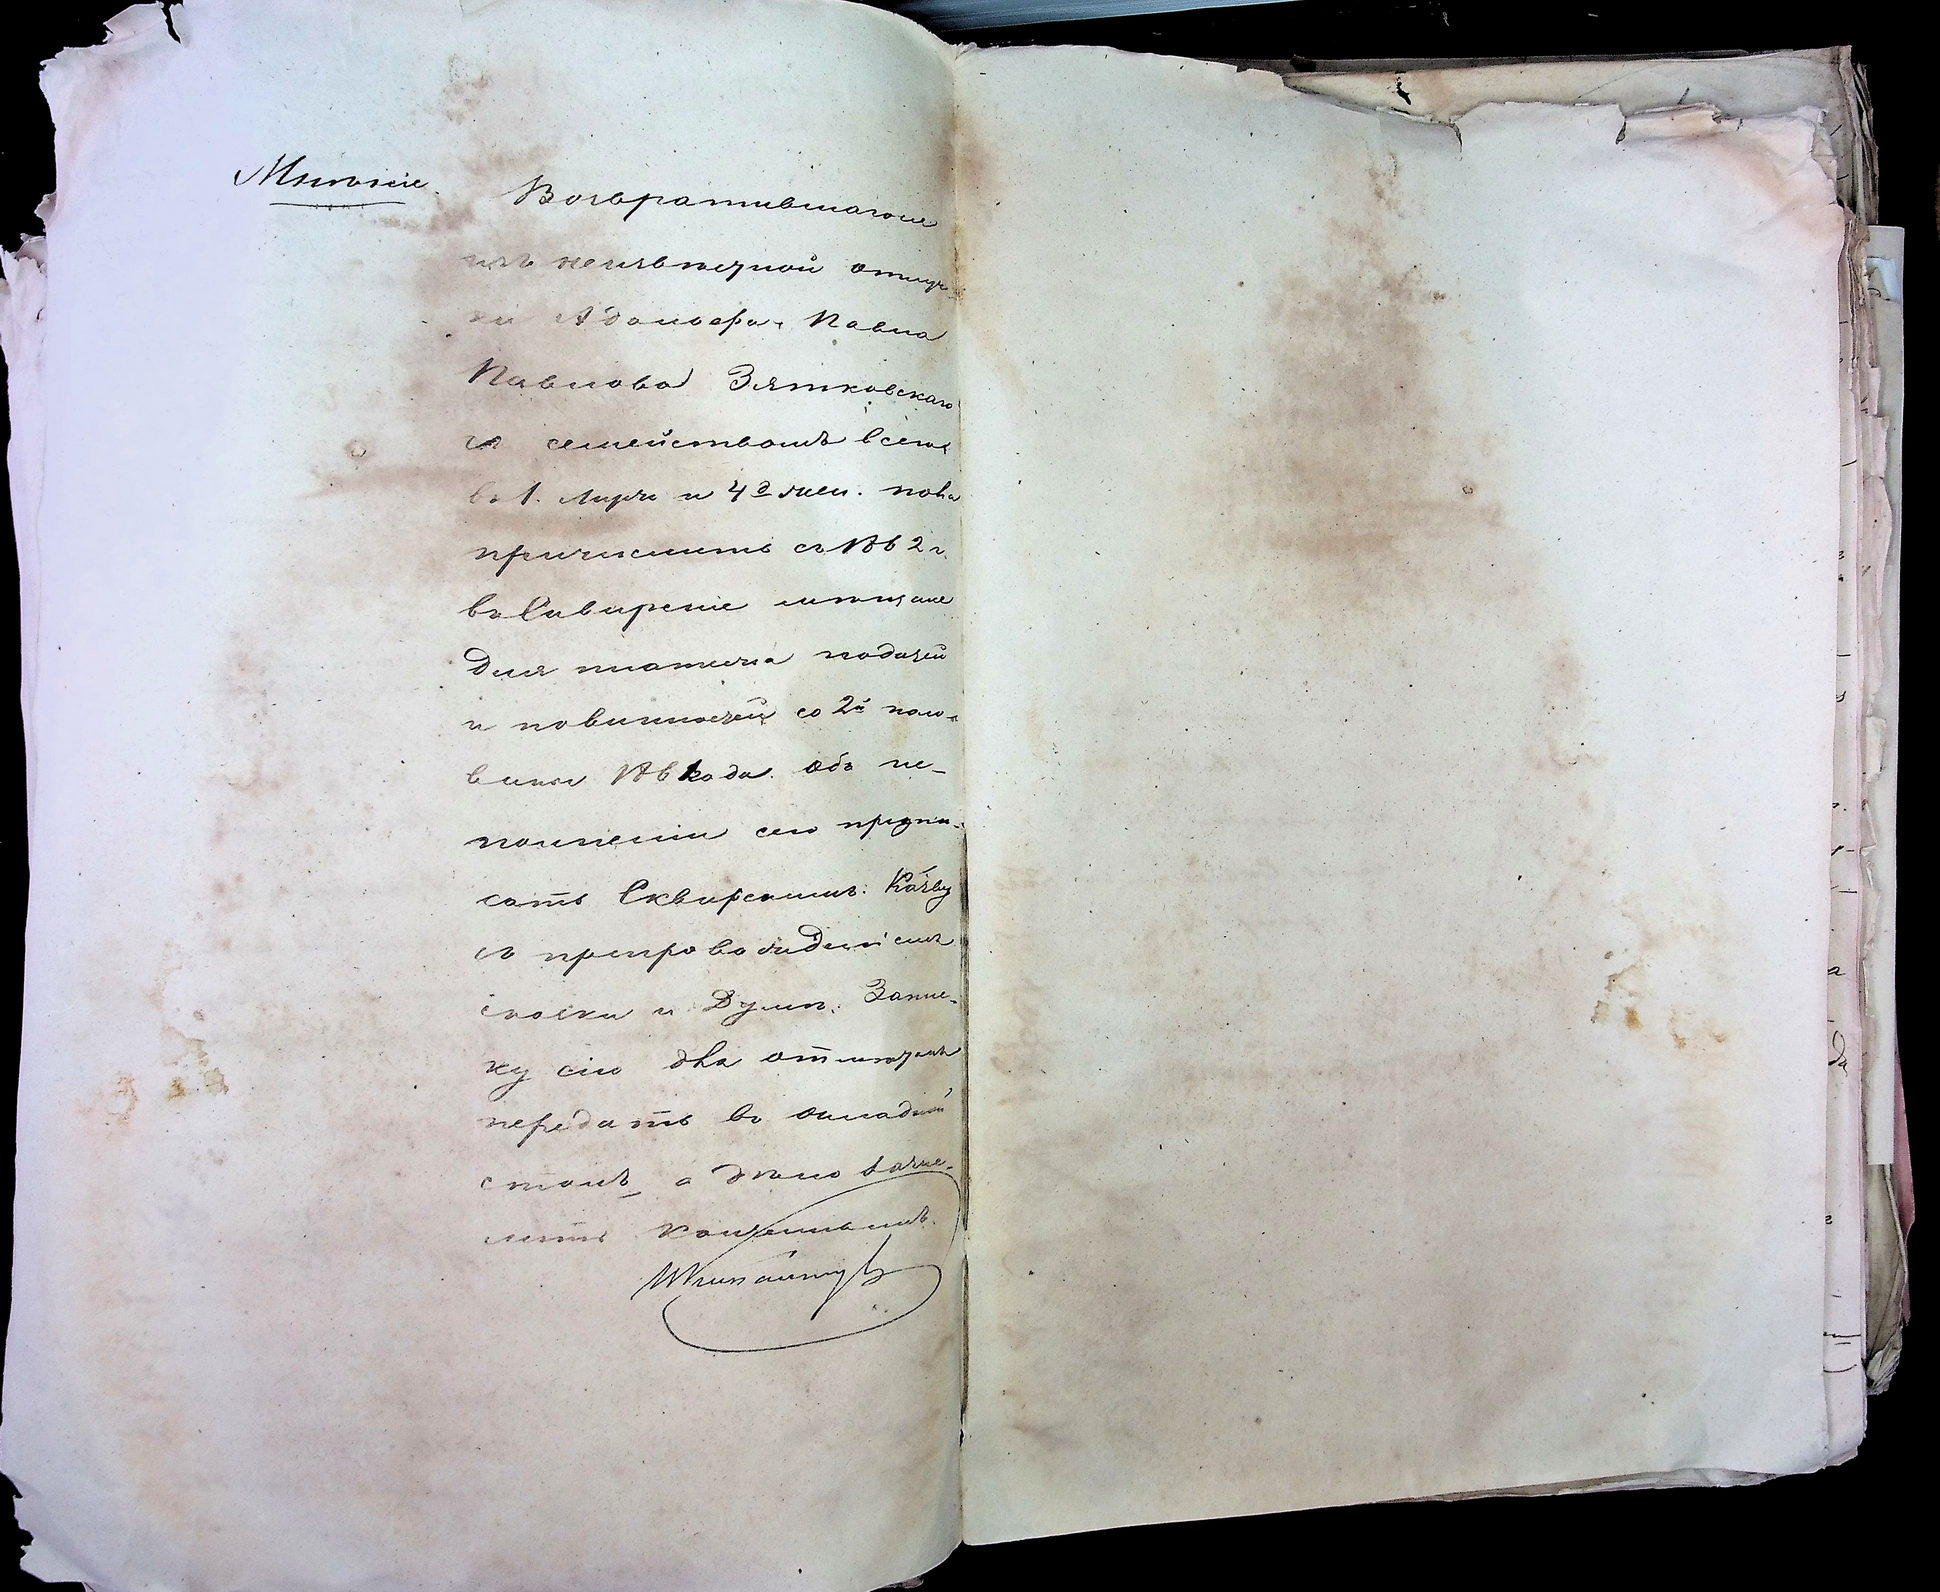 Мнѣніе.
Возвратившагося
изъ неизвѣстной отлуч-
ки Адольфа-Павла
Павлова Зятковскаго
съ семействомъ всего
въ 1. муж и 4 жен. пола
причислить съ 1862 г.
въ Сквирскіе мѣщане
для платежа податей
и повинностей со 2й поло-
вины 1861 года. Объ ис-
полненіи сего предпи-
сать Сквирскимъ: Казву
съ препровожденіемъ
сказки и Думѣ. Запис-
ку сію для отмѣтки
передать въ окладной
столъ, а дѣло зачис-
лить конченнымъ.